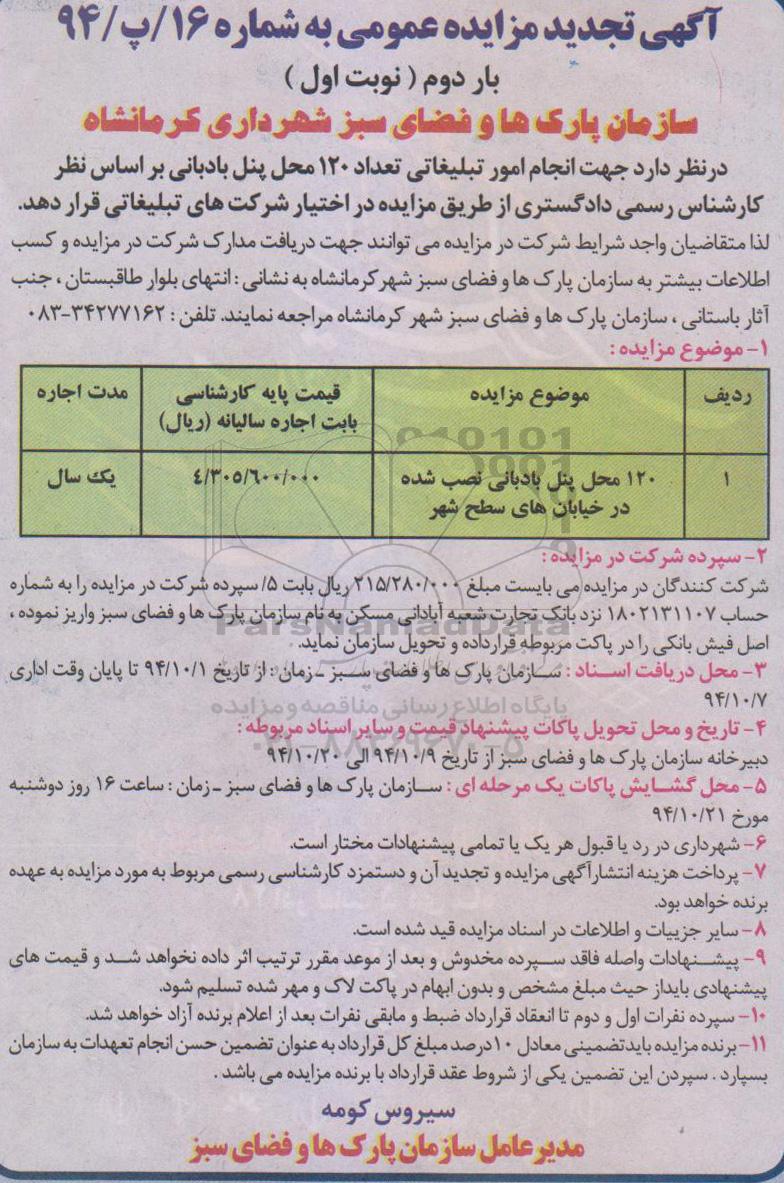 آگهی تجدید مزایده عمومی به شماره ۱۶/پ/۹۴
بار دوم ( نوبت اول )
سازمان پارک ها و فضای سبز شهرداری کرمانشاه
درنظر دارد جهت انجام امور تبلیغاتی تعداد ۱۲۰ محل پنل بادبانی بر اساس نظر
کارشناس رسمی دادگستری از طریق مزایده در اختیار شرکت های تبلیغاتی قرار دهد.
لذا متقاضیان واجد شرایط شرکت در مزایده می توانند جهت دریافت مدارک شرکت در مزایده و کسب
اطلاعات بیشتر به سازمان پارک ها و فضای سبز شهر کرمانشاه به نشانی : انتهای بلوار طاقبستان ، جنب
آثار باستانی ، سازمان پارک ها و فضای سبز شهر کرمانشاه مراجعه نمایند. تلفن : ۳۴۲۷۷۱۶۲-۰۸۳
۱- موضوع مزایده :
ردیف موضوع مزایده قیمت پایه کارشناسی مدت اجاره
بابت اجاره سالیانه (ریال)
۱ ۱۲۰ محل پنل بادبانی نصب شده ۴/۳۰۵/۶۰۰/۰۰۰ یک سال
در خیابان های سطح شهر
۲- سپرده شرکت در مزایده :
شرکت کنندگان در مزایده می بایست مبلغ ۲۱۵/۲۸۰/۰۰۰ ریال بابت ۵/ سپرده شرکت در مزایده را به شماره
حساب ۱۸۰۲۱۳۱۱۰۷ نزد بانک تجارت شعبه آبادانی مسکن به نام سازمان پارک ها و فضای سبز واریز نموده ،
اصل فیش بانکی را در پاکت مربوطه قرارداده و تحویل سازمان نماید.
۳- محل دریافت اسناد : سازمان پارک ها و فضای سبز ـ زمان : از تاریخ ۹۴/۱۰/۱ تا پایان وقت اداری
۹۴/۱۰/۷
۴- تاریخ و محل تحویل پاکات پیشنهاد قیمت و سایر اسناد مربوطه :
دبیرخانه سازمان پارک ها و فضای سبز از تاریخ ۹۴/۱۰/۹ الی ۹۴/۱۰/۲۰
۵- محل گشایش پاکات یک مرحله ای : سازمان پارک ها و فضای سبز ـ زمان : ساعت ۱۶ روز دوشنبه
مورخ ۹۴/۱۰/۲۱
۶- شهرداری در رد یا قبول هر یک یا تمامی پیشنهادات مختار است.
۷- پرداخت هزینه انتشارآگهی مزایده و تجدید آن و دستمزد کارشناسی رسمی مربوط به مورد مزایده به عهده
برنده خواهد بود.
۸- سایر جزییات و اطلاعات در اسناد مزایده قید شده است.
۹- پیشنهادات واصله فاقد سپرده مخدوش و بعد از موعد مقرر ترتیب اثر داده نخواهد شد و قیمت های
پیشنهادی بایداز حیث مبلغ مشخص و بدون ابهام در پاکت لاک و مهر شده تسلیم شود.
۱۰- سپرده نفرات اول و دوم تا انعقاد قرارداد ضبط و مابقی نفرات بعد از اعلام برنده آزاد خواهد شد.
۱۱- برنده مزایده بایدتضمینی معادل ۱۰درصد مبلغ کل قرارداد به عنوان تضمین حسن انجام تعهدات به سازمان
بسپارد . سپردن این تضمین یکی از شروط عقد قرارداد با برنده مزایده می باشد .
سیروس کومه
مدیرعامل سازمان پارک ها و فضای سبز
ParsNamadData
پایگاه اطلاع رسانی مناقصه و مزایده